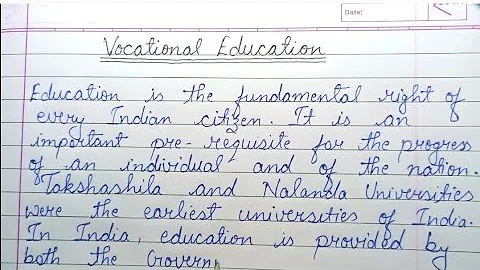 Date:
Vocational Education
Education is the fundamental right of
every Indian citizen. It is an
important pre-requisite for the progress
of an individual and of the nation.
Takshashila and Nalanda Universities
were the earliest universities of India.
In India, education is provided by
both the Governm